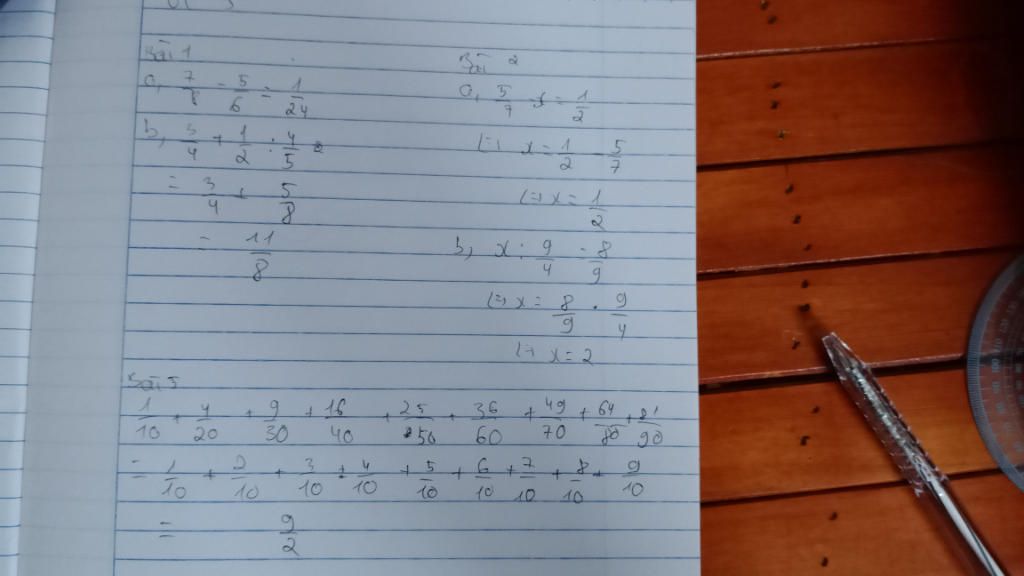 Bài 1
a, 7/8 - 5/6 = 1/24
b, 3/4 + 1/2 : 4/5 =
= 3/4 + 5/8
= 11/8
Bài 2
a, 5/7 x = 1/2
<=> x = 1/2 5/7
<=> x = 1/2
b, x : 9/4 = 8/9
<=> x = 8/9 . 9/4
<=> x = 2
Bài 5
1/10 + 4/20 + 9/30 + 16/40 + 25/50 + 36/60 + 49/70 + 64/80 + 81/90
= 1/10 + 2/10 + 3/10 + 4/10 + 5/10 + 6/10 + 7/10 + 8/10 + 9/10
= 9/2